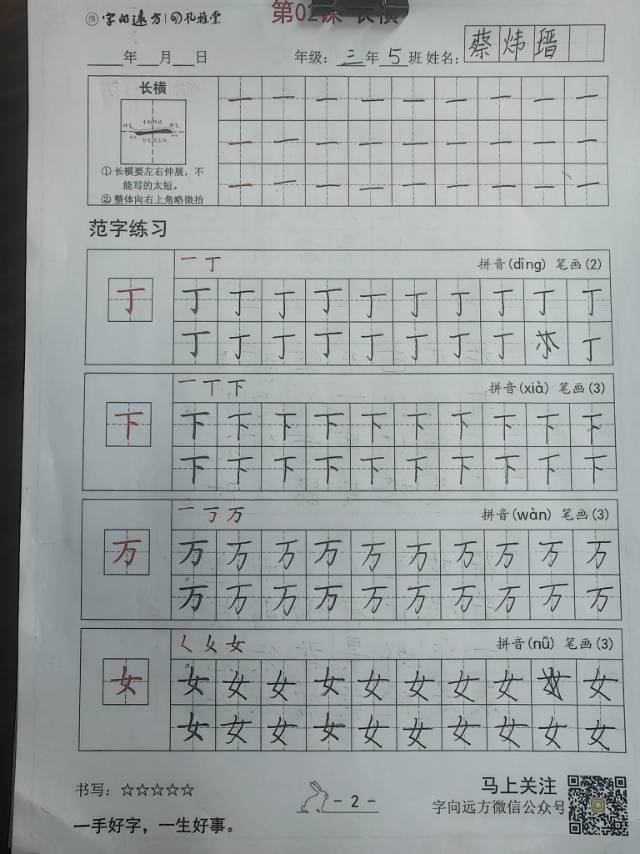 字向远方 孔雅堂
第02课 长横
年 月 日 年级：三年5班 姓名：蔡炜瑨
长横
①长横要左右伸展，不
能写的太短。
②整体向右上角略微抬
一 一 一 一 一 一 一 一 一
一 一 一 一 一 一 一 一 一
一 一 一 一 一 一 一 一 一
范字练习
一 丁 拼音(dīng) 笔画(2)
丁
丁 丁 丁 丁 丁 丁 丁 丁 丁 丁
丁 丁 丁 丁 丁 丁 丁 丁 丁
一 丅 下 拼音(xià) 笔画(3)
下
下 下 下 下 下 下 下 下 下 下
下 下 下 下 下 下 下 下 下 下
一 丆 万 拼音(wàn) 笔画(3)
万
万 万 万 万 万 万 万 万 万 万
万 万 万 万 万 万 万 万 万 万
く 夊 女 拼音(nǚ) 笔画(3)
女
女 女 女 女 女 女 女 女 女 女
女 女 女 女 女 女 女 女 女 女
书写：☆☆☆☆☆
- 2 -
马上关注
字向远方微信公众号
一手好字，一生好事。